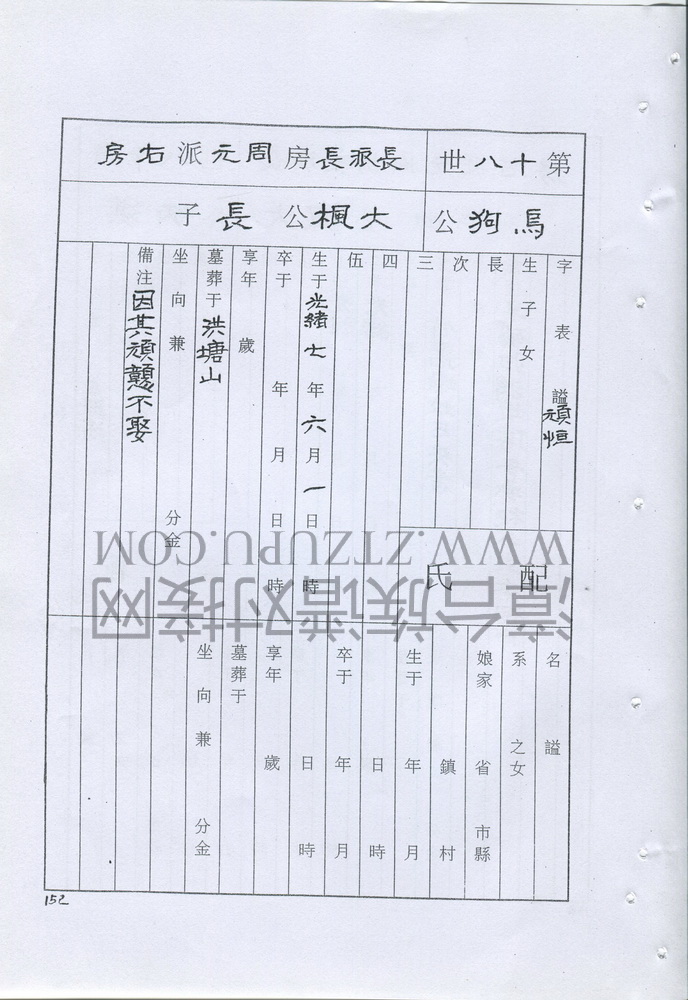 第十八世
長派長房周元派右房
烏狗公
大楓公長子
字 表 謚頑恒
生子女
長
次
三
四
伍
生于光緒七年六月一日 時
卒于 年 月 日 時
享年 歲
墓葬于洪塘山
坐向兼 分金
備注因其頑戇不娶
配 氏
名 謚
系 之女
娘家 省 市縣
鎮 村
生于 年 月
日 時
卒于 年 月
日 時
享年 歲
墓葬于
坐向兼 分金
152
WWW.ZTZUPU.COM
漳台族谱对接网